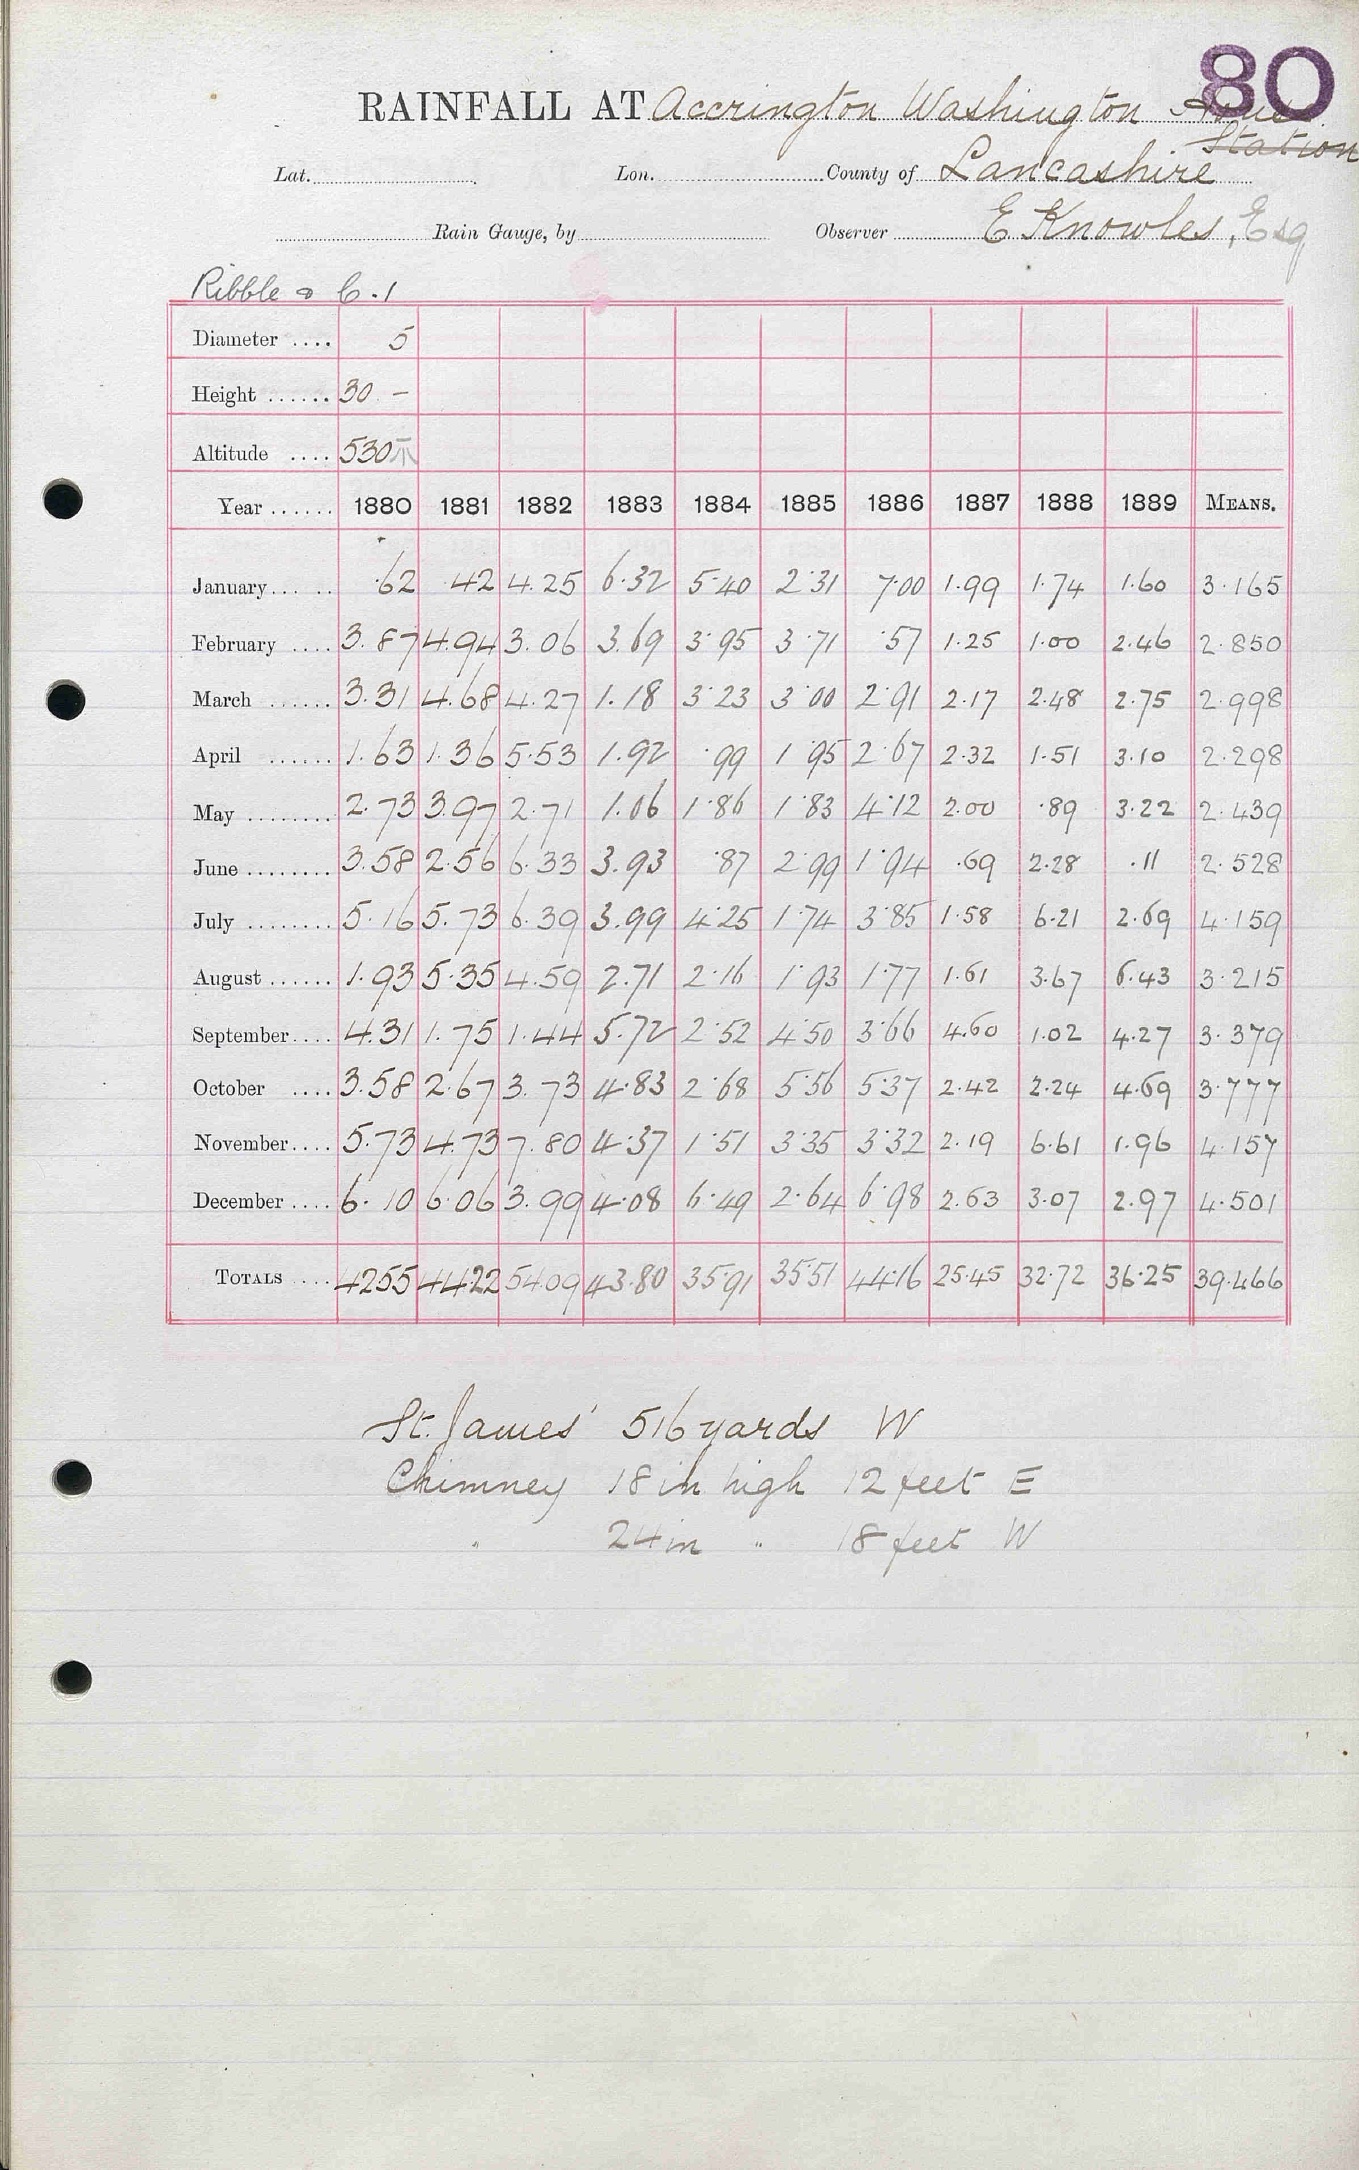 80
RAINFALL AT Accrington Washington
Station
Lat. Lon. County of Lancashire
Rain Gauge, by Observer E Knowles, Esq
Ribble & C.1
Diameter .... 5
Height ...... 30 -
Altitude .... 530
Year ...... 1880 1881 1882 1883 1884 1885 1886 1887 1888 1889 MEANS.
January... .. .62 .42 4.25 6.32 5.40 2.31 7.00 1.99 1.74 1.60 3.165
February .... 3.87 4.94 3.06 3.69 3.95 3.71 .57 1.25 1.00 2.46 2.850
March ...... 3.31 4.68 4.27 1.18 3.23 3.00 2.91 2.17 2.48 2.75 2.998
April ...... 1.63 1.36 5.53 1.92 .99 1.95 2.67 2.32 1.51 3.10 2.298
May ........ 2.73 3.97 2.71 1.06 1.86 1.83 4.12 2.00 .89 3.22 2.439
June ........ 3.58 2.56 6.33 3.93 .87 2.99 1.94 .69 2.28 .11 2.528
July ........ 5.16 5.73 6.39 3.99 4.25 1.74 3.85 1.58 6.21 2.69 4.159
August ...... 1.93 5.35 4.59 2.71 2.16 1.93 1.77 1.61 3.67 6.43 3.215
September.... 4.31 1.75 1.44 5.72 2.52 4.50 3.66 4.60 1.02 4.27 3.379
October .... 3.58 2.67 3.73 4.83 2.68 5.56 5.37 2.42 2.24 4.69 3.777
November.... 5.73 4.73 7.80 4.37 1.51 3.35 3.32 2.19 6.61 1.96 4.157
December .... 6.10 6.06 3.99 4.08 6.49 2.64 6.98 2.63 3.07 2.97 4.501
TOTALS .... 42.55 44.22 54.09 43.80 35.91 35.51 44.16 25.45 32.72 36.25 39.466
St. James' 516 yards W
Chimney 18 in high 12 feet E
" 24 in " 18 feet W